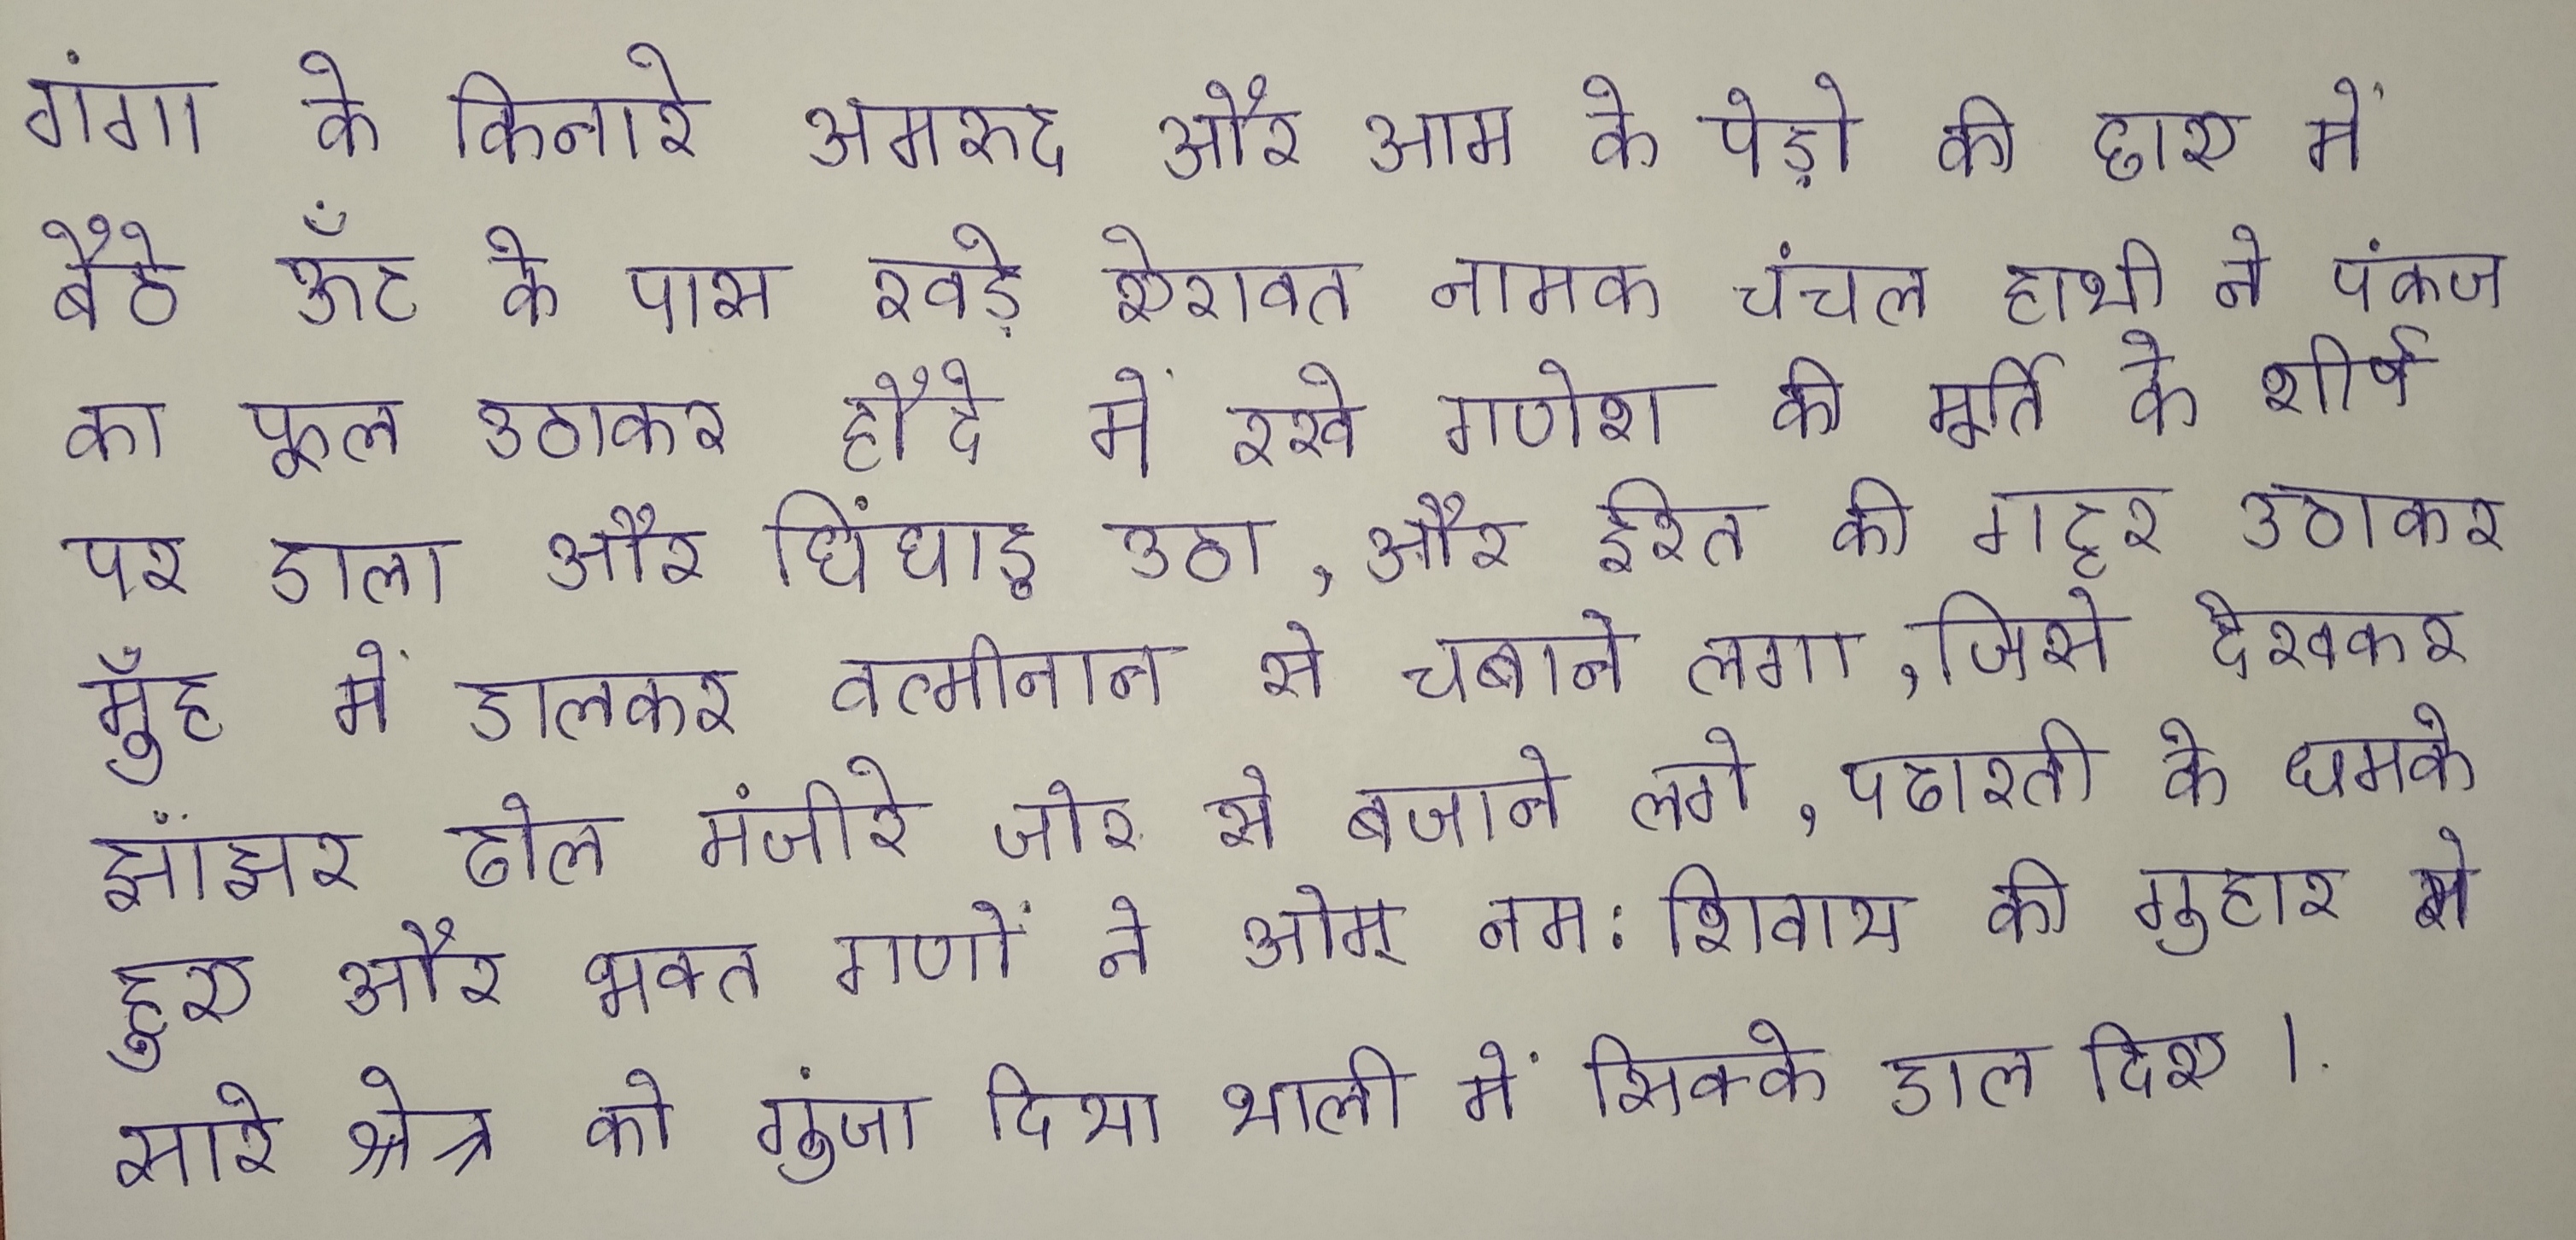 गंगा के किनारे अमरुद और आम के पेड़ो की छाए में
बैठे ऊँट के पास खड़े ऐरावत नामक चंचल हाथी ने पंकज
का फूल उठाकर हौदे में रखे गणेश की मूर्ति के शीर्ष
पर डाला और घिंघाड़ उठा, और ईख की गट्ठर उठाकर
मुँह में डालकर इत्मीनान से चबाने लगा, जिसे देखकर
झांझर ढोल मंजीरे जोर से बजाने लगे, के धमके
हुए और भक्त गणों ने ओम् नमः शिवाय की गुहार से
सारे क्षेत्र को गुंजा दिया थाली में सिक्के डाल दिए ।